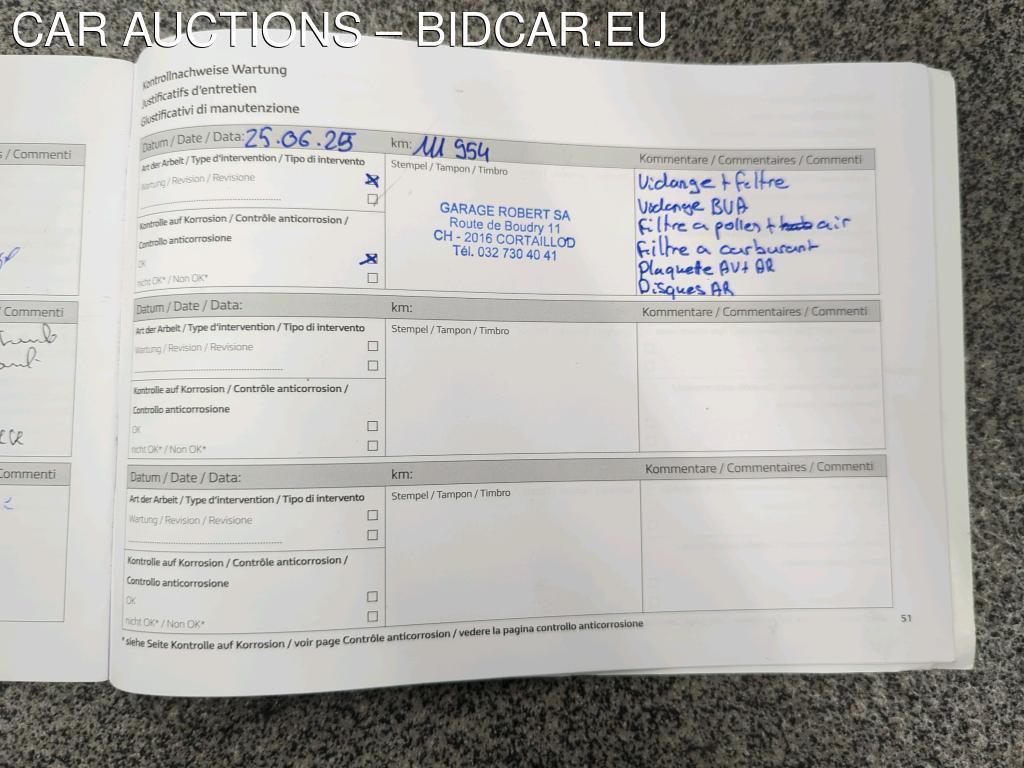 CAR AUCTIONS – BIDCAR.EU
Kontrollnachweise Wartung
Justificatifs d'entretien
Giustificativi di manutenzione
s / Commenti
Datum / Date / Data: 25.06.25 km: 111 954 Kommentare / Commentaires / Commenti
Art der Arbeit / Type d'intervention / Tipo di intervento
Wartung / Revision / Revisione
Kontrolle auf Korrosion / Contrôle anticorrosion /
Controllo anticorrosione
OK
nicht OK* / Non OK*
Stempel / Tampon / Timbro
GARAGE ROBERT SA
Route de Boudry 11
CH - 2016 CORTAILLOD
Tél. 032 730 40 41
Vidange + filtre
Vidange BVA
Filtre a pollen + air
Filtre a carburant
Plaquete AV + AR
Disques AR
/ Commenti
Datum / Date / Data: km: Kommentare / Commentaires / Commenti
Art der Arbeit / Type d'intervention / Tipo di intervento
Wartung / Revision / Revisione
Kontrolle auf Korrosion / Contrôle anticorrosion /
Controllo anticorrosione
OK
nicht OK* / Non OK*
Stempel / Tampon / Timbro
Commenti
Datum / Date / Data: km: Kommentare / Commentaires / Commenti
Art der Arbeit / Type d'intervention / Tipo di intervento
Wartung / Revision / Revisione
Kontrolle auf Korrosion / Contrôle anticorrosion /
Controllo anticorrosione
OK
nicht OK* / Non OK*
Stempel / Tampon / Timbro
*siehe Seite Kontrolle auf Korrosion / voir page Contrôle anticorrosion / vedere la pagina controllo anticorrosione
51